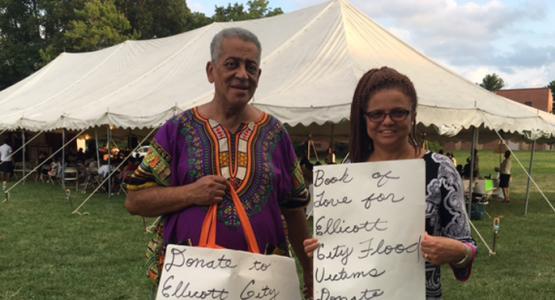 Donate to
Ellicott City
Book of
Love for
Ellicott
City Flood
Victims
Donate